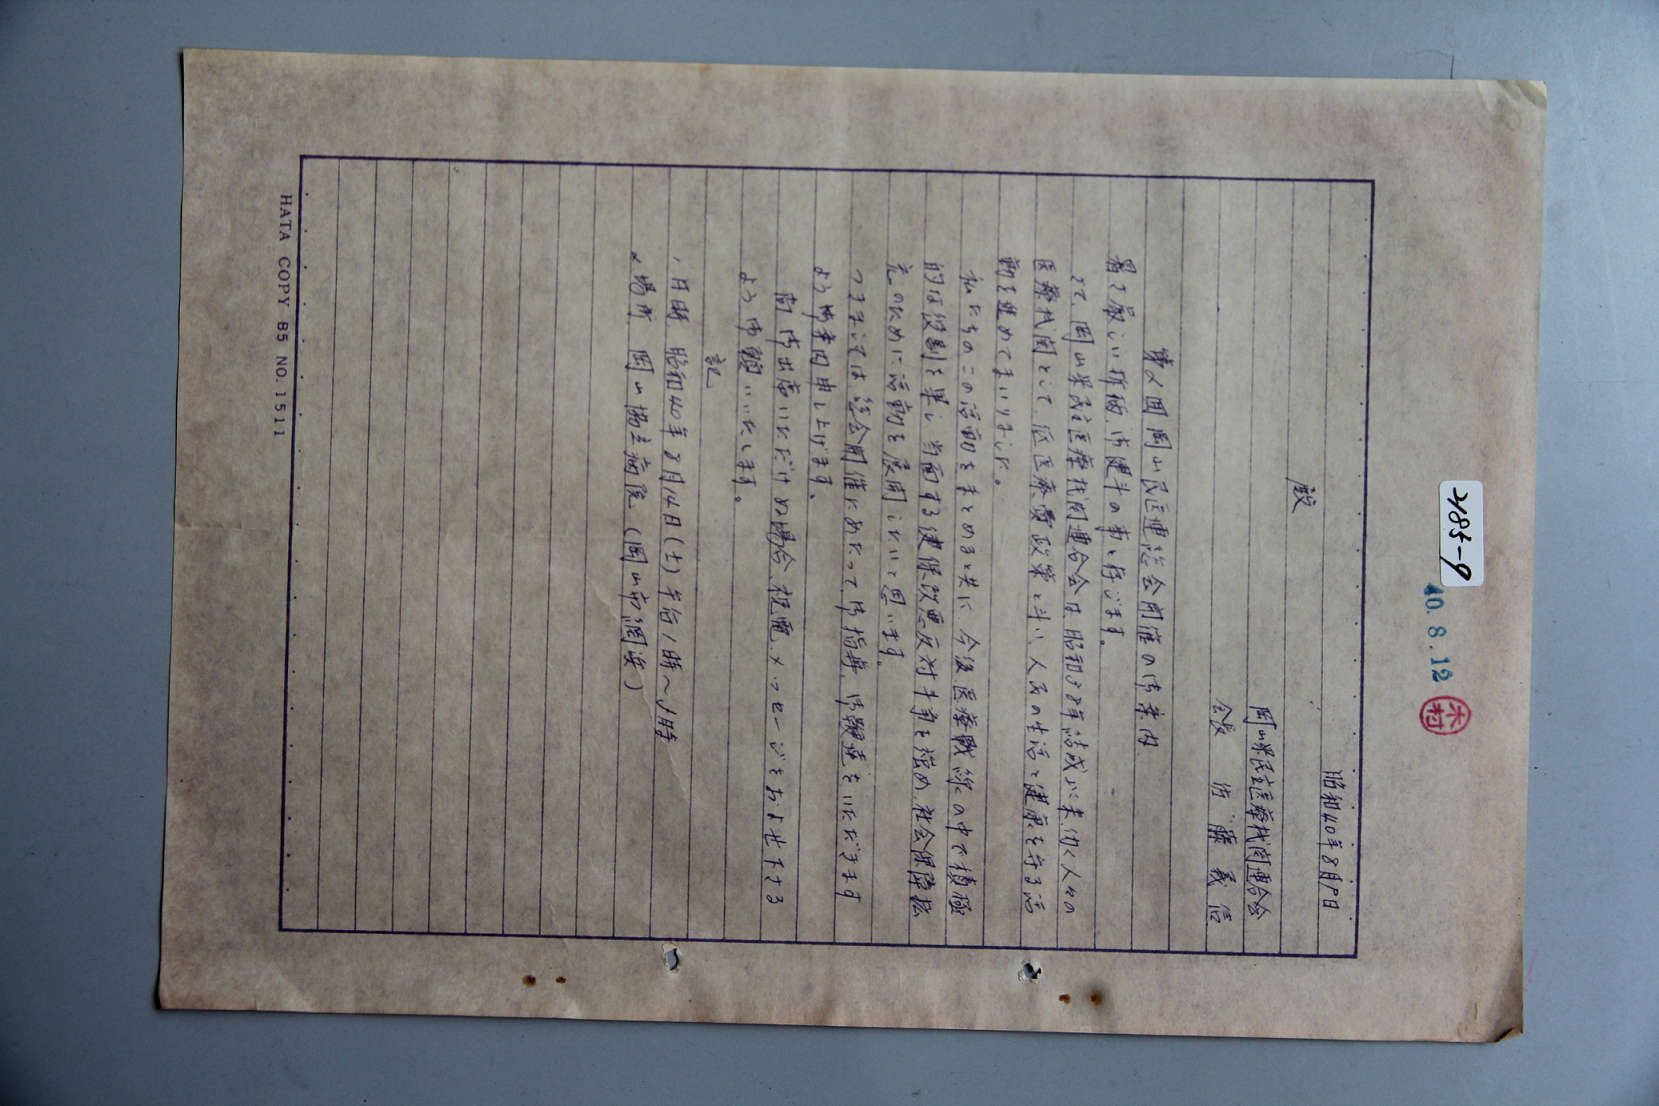 485-9
40.8.12
木村
昭和40年8月 日
殿
岡山県民主医療機関連合会
会長 佐藤義信
第2回岡山民医連総会開催の御案内
暑さ厳しい折柄、御健斗の事と存じます。
さて、岡山県民主医療機関連合会は、昭和38年結成以来働く人々の
医療機関として、低医療費政策と斗い人民の生活と健康を守る活
動を進めてまいりました。
私たちのこの活動をまとめると共に、今後医療戦線の中で積極
的な役割を果し、当面する健保改悪反対斗争を強め、社会保障拡
充のために活動を展開したいと思います。
つきましては、総会開催にあたって、御指導、御鞭撻をいただきます
よう御案内申し上げます。
尚、御出席いただけぬ場合、祝電、メッセージをおよせ下さる
よう御願いいたします。
記
1 日時 昭和40年8月14日(土)午后1時~5時
2 場所 岡山協立病院(岡山市網浜)
HATA COPY B5 NO.1511